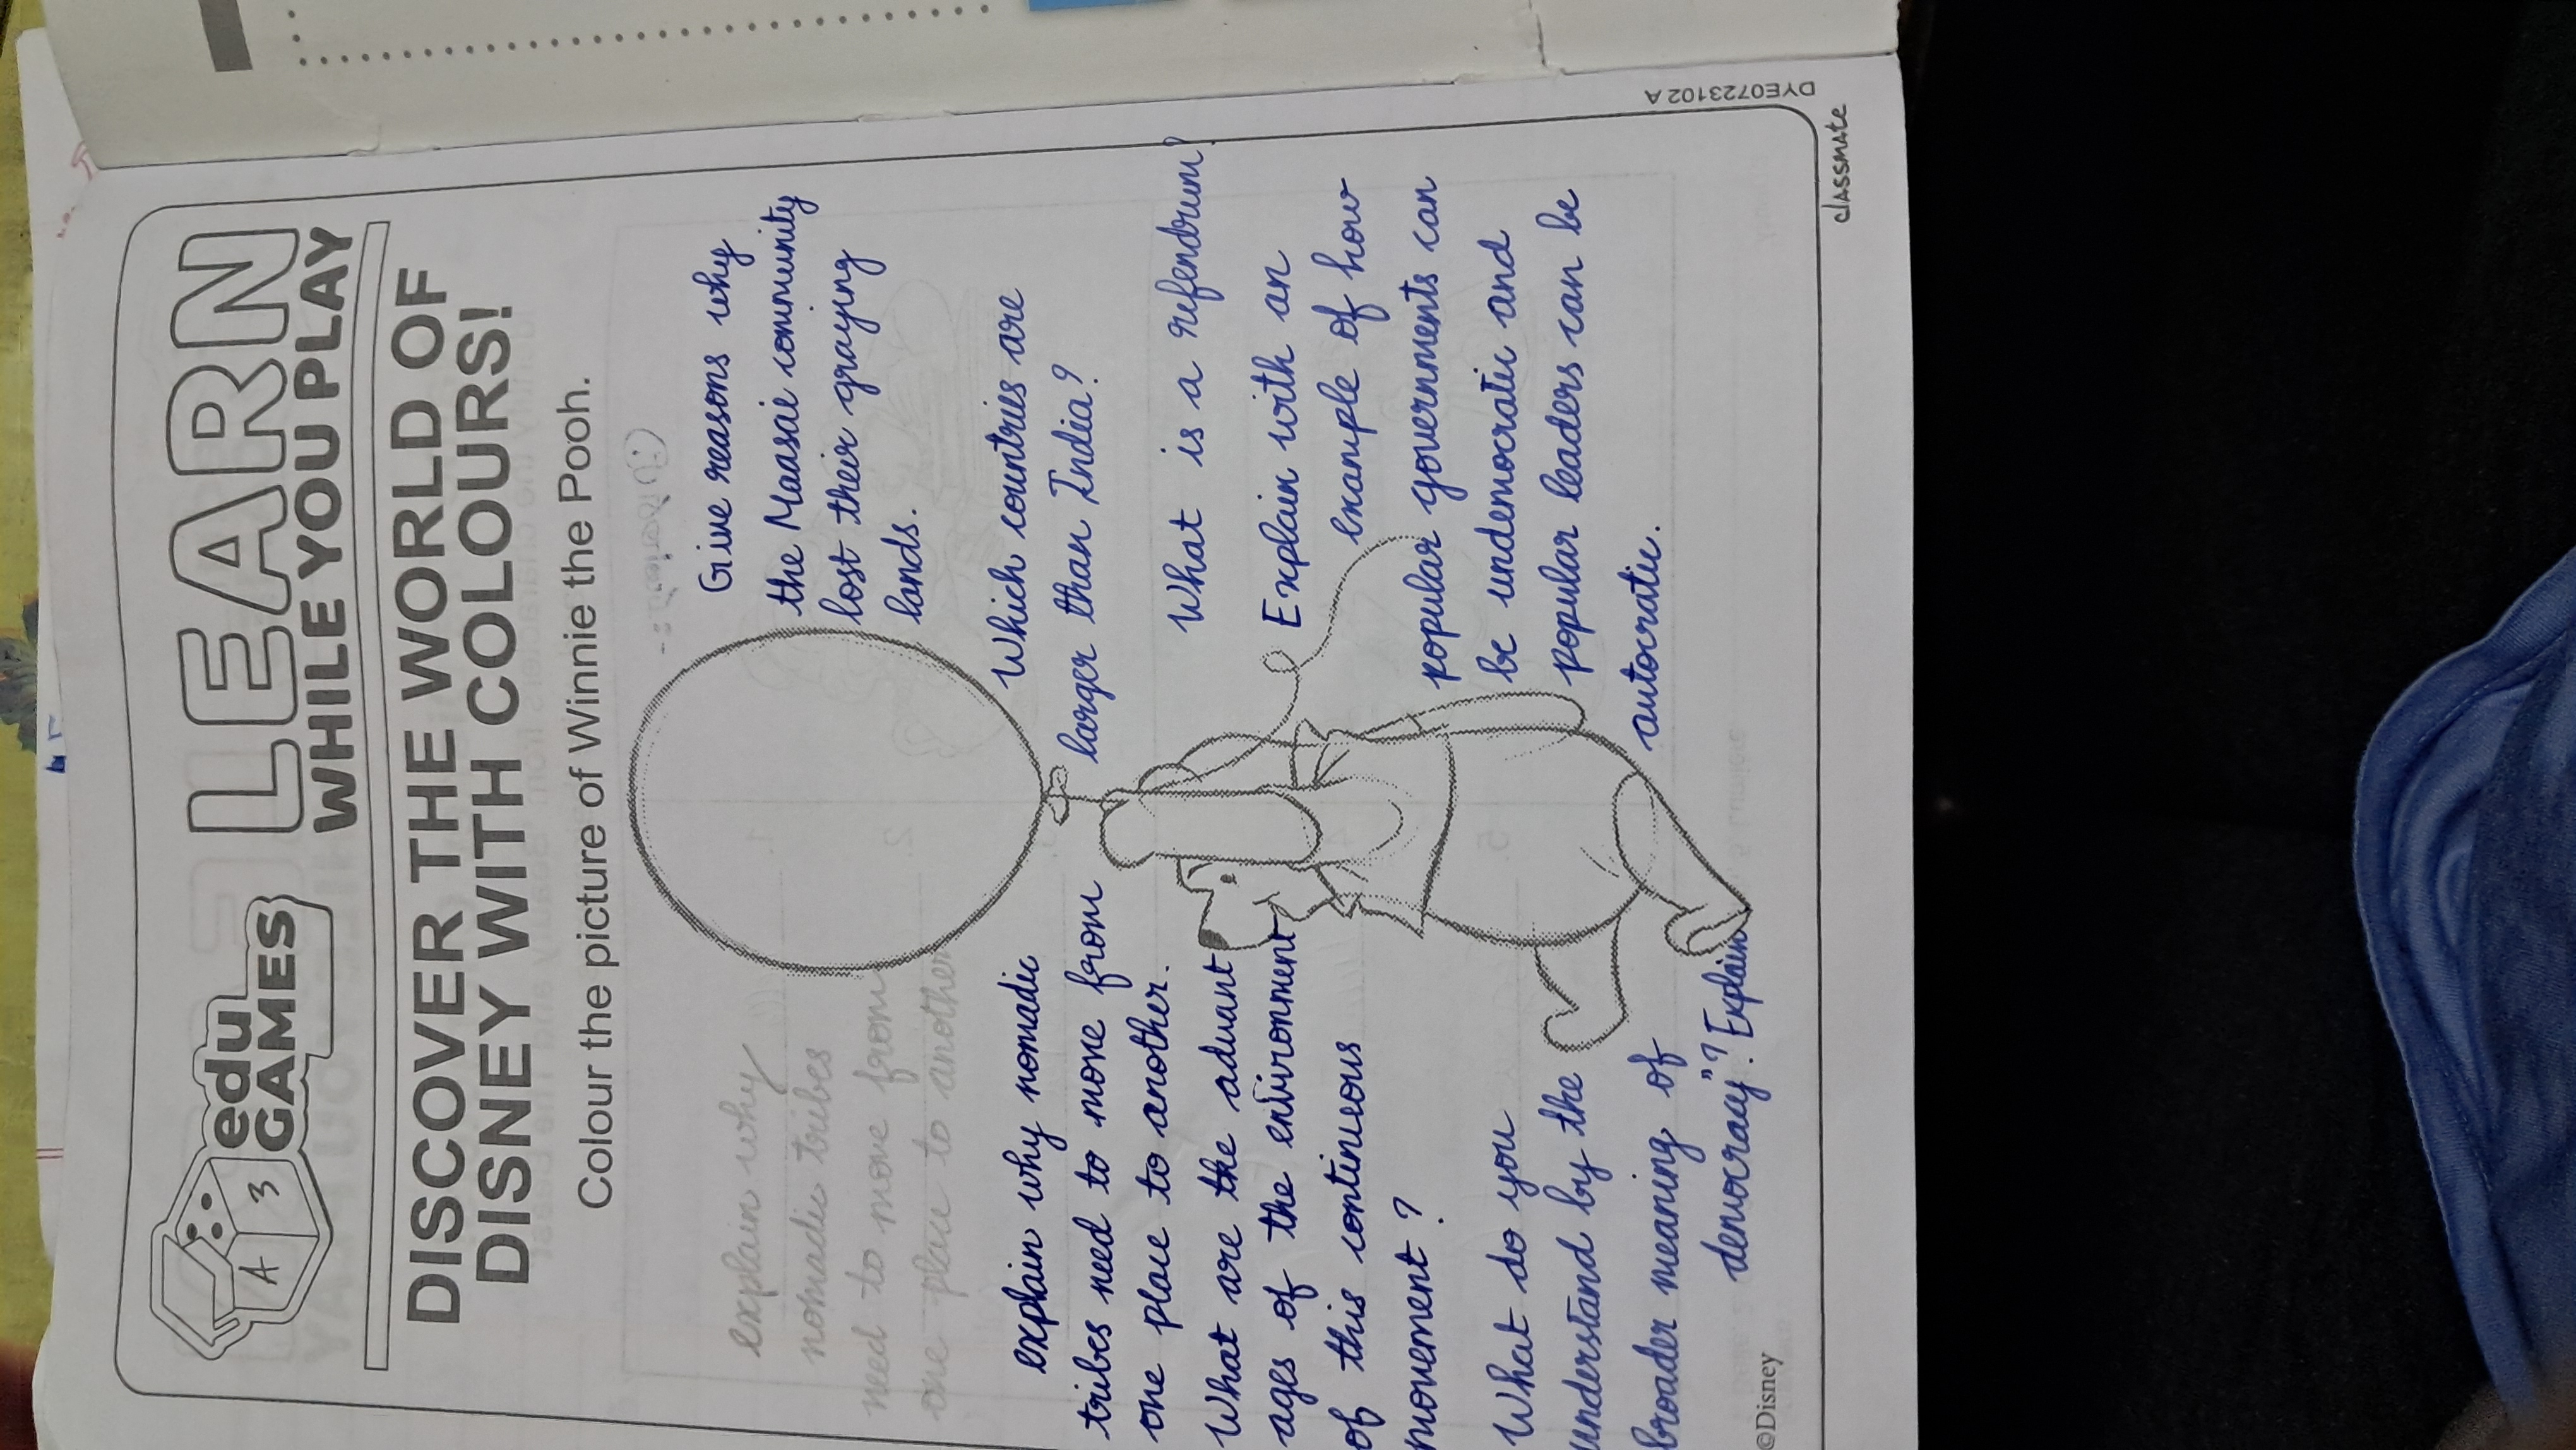 edu
GAMES
A 3
LEARN
WHILE YOU PLAY
DISCOVER THE WORLD OF
DISNEY WITH COLOURS!
Colour the picture of Winnie the Pooh.
explain why
nomadic tribes
need to move from
one place to another
explain why nomadic
tribes need to move from
one place to another.
What are the advant
ages of the environment
of this continueous
movement ?
What do you
understand by the
broader meaning of
democracy"? Explain
Give reasons why
the Maasai community
lost their graying
lands.
Which countries are
larger than India?
What is a refendrum?
Explain with an
example of how
popular governments can
be undemocratic and
popular leaders can be
autocratic.
©Disney
DYE0723102 A
classmate